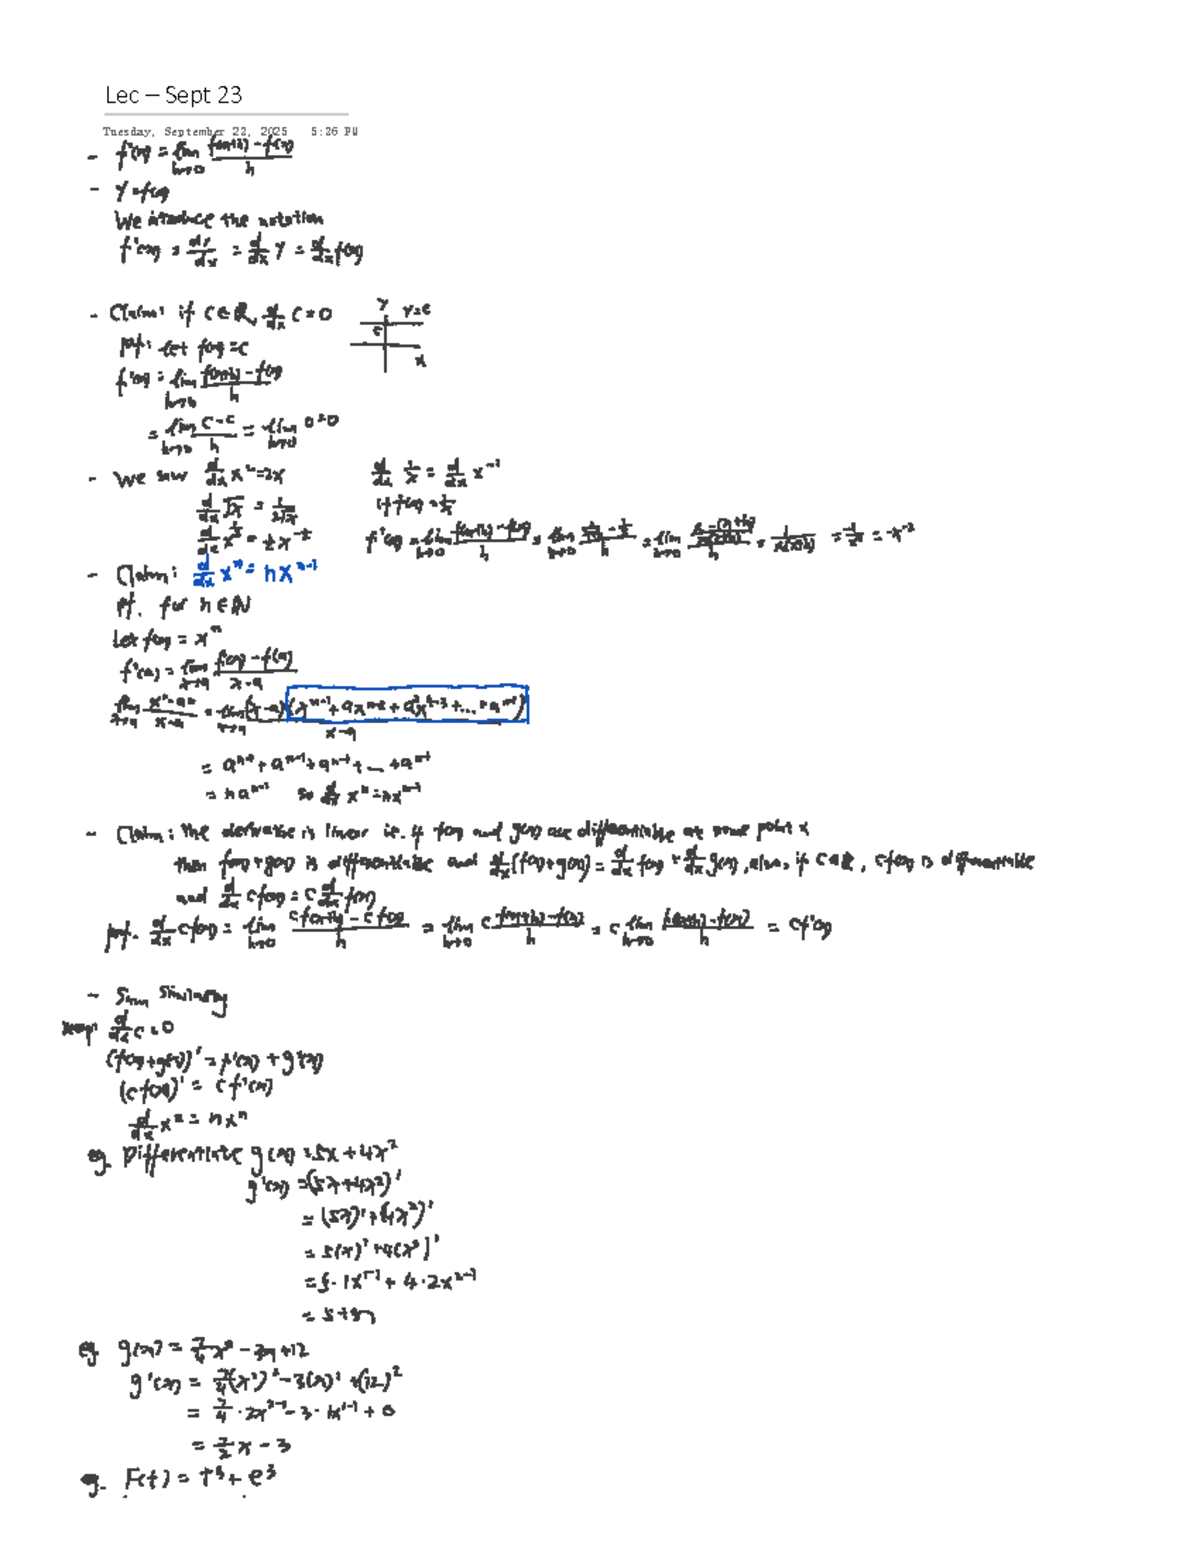 Lec – Sept 23
Tuesday, September 22, 2025 5:26 PM
- f'(x) = lim h→0 (f(x+h) - f(x))/h
- y = f(x)
We introduce the notation
f'(x) = dy/dx = d/dx y = d/dx f(x)
- Claim: if C ∈ R, d/dx C = 0
y y=c
c
x
pf: Let f(x) = c
f'(x) = lim h→0 (f(x+h) - f(x))/h
= lim h→0 (c - c)/h = lim h→0 0 = 0
- We saw d/dx x² = 2x
d/dx √x = 1/(2√x)
d/dx x^(1/2) = ½ x^(-1/2)
d/dx 1/x = d/dx x^(-1)
if f(x) = 1/x
f'(x) = lim h→0 (f(x+h) - f(x))/h = lim h→0 = lim h→0 = = = -x^(-2)
- Claim: d/dx x^n = n x^(n-1)
pf. for n ∈ N
Let f(x) = x^n
f'(a) = lim x→a (f(x) - f(a))/(x-a)
lim x→a (x^n - a^n)/(x-a) = lim x→a (x-a)(x^(n-1) + ax^(n-2) + a²x^(n-3) + ... + a^(n-1))/(x-a)
= a^(n-1) + a^(n-1) + a^(n-1) + ... + a^(n-1)
= na^(n-1) so d/dx x^n = nx^(n-1)
- Claim: the derivative is linear ie. if f(x) and g(x) are differentiable at some point x
then f(x)+g(x) is differentiable and d/dx (f(x)+g(x)) = d/dx f(x) + d/dx g(x), also, if C ∈ R, cf(x) is differentiable
and d/dx cf(x) = c d/dx f(x)
pf. d/dx cf(x) = lim h→0 (cf(x+h) - cf(x))/h = lim h→0 c (f(x+h) - f(x))/h = c lim h→0 (f(x+h) - f(x))/h = cf'(x)
- Sum similarly
d/dx c = 0
(f(x)+g(x))' = f'(x) + g'(x)
(cf(x))' = cf'(x)
d/dx x^n = nx^n
eg. Differentiate g(x) = 5x + 4x²
g'(x) = (5x+4x²)'
= (5x)' + (4x²)'
= 5(x)' + 4(x²)'
= 5·1x^(1-1) + 4·2x^(2-1)
= 5+8x
eg g(x) = 7/4 x² - 3x + 12
g'(x) = 7/4 (x²)' - 3(x)' + (12)²
= 7/4 · 2x^(2-1) - 3·1x^(1-1) + 0
= 7/2 x - 3
eg. F(t) = t³ + e³